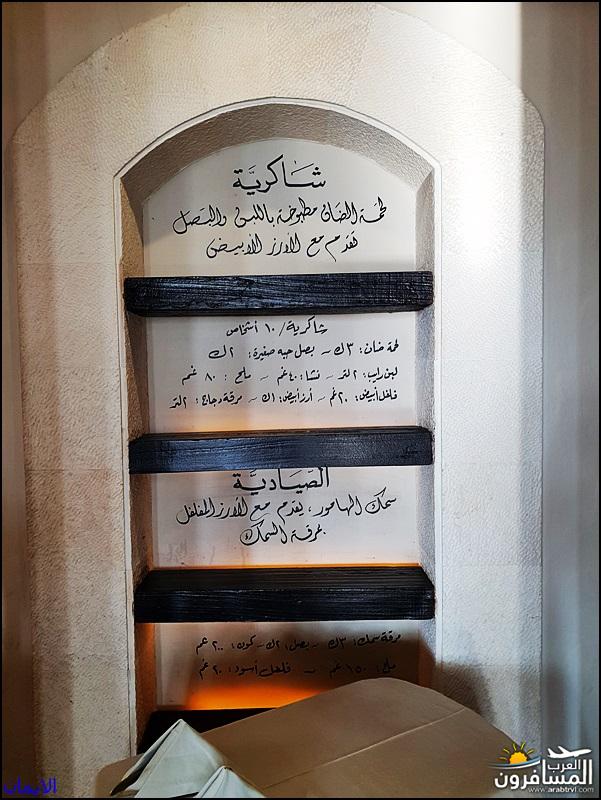 شاكرية
لحمة الضان مطبوخة باللبن والبصل
تقدم مع الأرز الابيض
شاكرية / ١٠ أشخاص
لحمة ضان: ٣ك - بصل حبه صغيرة: ٢ك
لبن رايب: ٢ لتر - نشا: ٤٠ غم - ملح: ٨٠ غم
فلفل أبيض: ٢٠ غم - أرز ابيض: ١ك - مرقة دجاج: ٢ لتر
الصَّياديَّة
سمك الهامور، يقدم مع الأرز المفلفل
بمرقة السمك
مرقة سمك: ٣ك - بصل: ٢ك - كمون: ٢٠٠ غم
ملح: ١٥٠ غم - فلفل أسود: ٢٠ غم
العرب
المسافرون
www.arabtrvl.com